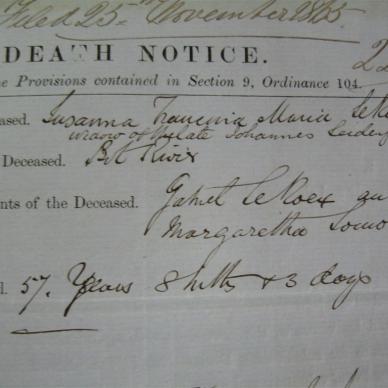 Filed 25th November 1865
DEATH NOTICE.
e Provisions contained in Section 9, Ordinance 104.
ased. Susanna Francina Maria LeRo
widow of the late Johannes
Deceased. Bot River
nts of the Deceased. Gabriel Le Roex
Margaretha
d. 57. Years 8 Mths & 3 days